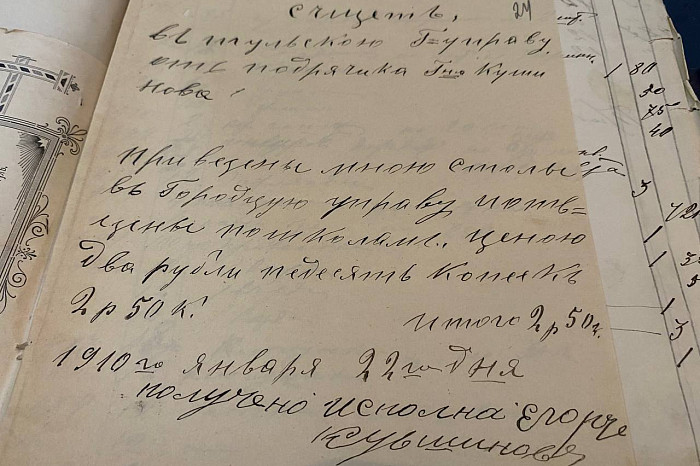 Сщетъ, 24
въ тульскою Г=управу
отъ подрячика Г=на Куши
нова!
При ведены мною столы
въ Городцую управу
щены пошколамъ., ценою
Два рубли педесять Копеекъ
2 р 50 к.
итого 2 р 50 к.
1910 го января 22 го Дня
получено исполна Егоръ
Кувшинова
1 80
50
75
40
3
1
1
1
3
1